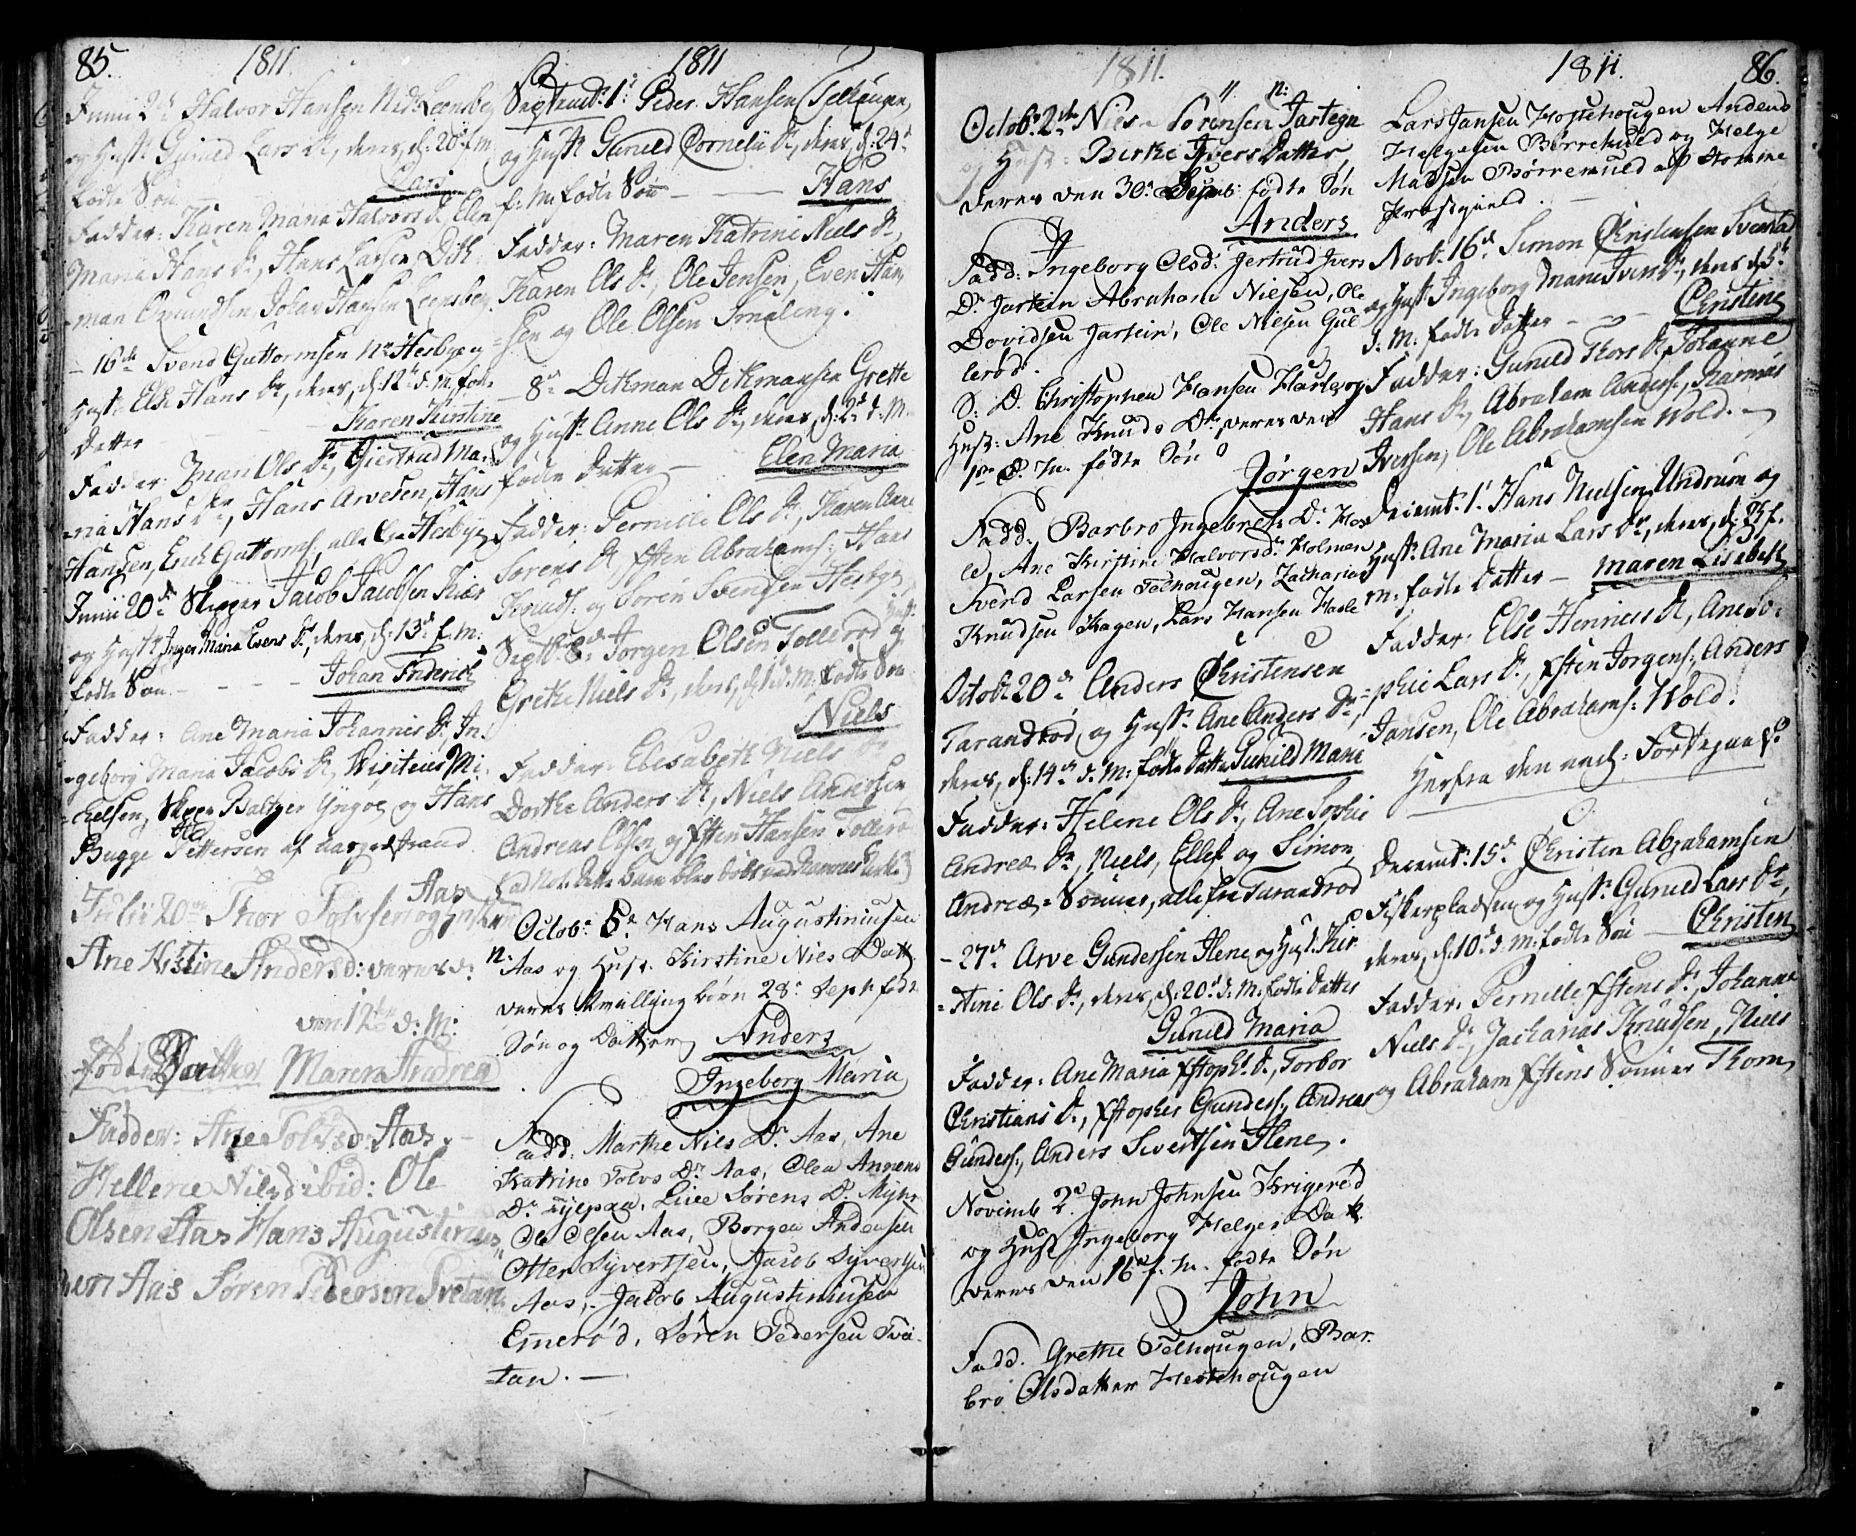 85.
1811.
Junii 2d Halvor Hansen Nedr. Leensbey
og Hustr. Gunild Lars Dr, deres, d: 28d f. m.
fødte Søn Lars
Fadder: Karen Maria Halvors Dr, Elen
Maria Hans Dr, Hans Larsen, Dith-
-man Omundsen, Johan Hansen Leensbey.
- 16de Svend Guttormsen Nr Hesbye og
Hustr. Else Hans Dr, deres, d: 12d d. M. fødte
Datter - - - Karen Kirstine
Fadder: Ols Dr, Giertrud Ma-
-ria Hans Dr, Hans Arvesen, Hans
Hansen, Erich Guttorms, alle fra Hesbye
Junii 20de Skipper Jacob Jacobsen
og Hustr. Inger Maria Evens Dr, deres, d: 13d f. m.
fødte Søn - - - - Johan Friderich
Fadder: Ane Maria Johannis Dr, In-
-geborg Maria Jacobs Dr, Mi-
-kelsen, Skipper Baltzer Yngve og Hans
Bugge Pettersen af Laurgestrand.
Julii 20de Thor Tolvsen Aas og Hustrue
Ane Kistine Andersd: deres d:
den 12te d: M:
fødte Datter Maren Andrea
Fadder: Ane Tolvsd: Aas,
Hellene Nilsd ibid: Ole
Olsen Aas Hans Augustinus-
sen Aas Søren Pedersen Svetan
1811
Septembr. 1d Peder Hansen Telhougen,
og Hustr. Gunild Cornelii Dr, deres, d: 24d
f. M. fødte Søn - - - Hans
Fadder: Maren Katrine Niels Dr,
Karen Ols Dr, Ole Jensen, Even Han-
-sen og Ole Olsen Smaleng.
- 8d Dithman Dithmansen Grette
og Hustr. Anne Ols Dr, deres, d. 2d d. M.
fødte Datter - Elen Maria
Fadder: Pernille Ols Dr, Karen Anne
Sørens Dr, Esten Abrahams: Hans
Knuds: og Søren Svendsen Hesbye
Septb. 8d Jørgen Olsen Tollerød og Hustr.
Grethe Niels Dr, deres, d. 1d d. M. fødte Søn
Niels
Fadder: Elisabeth Niels Dr
Dorthe Anders Dr, Niels Andersen
Andreas Olsen, og Esten Hansen Tollerød
Octobr. 6d Hans Augustiniussen
n: Aas og Hust. Kirstine Niels Datt.
deres Tvilling børn 28d Sept. født
Søn og Datter Anders
Ingeborg Maria
Fadd: Marthe Nils Dr Aas, Ane
Katrine Tolvs Dr Aas, Olea Annens
Dr Fylpaa, Live Sørens Dr Myhr
Ole Olsen Aas, Borger Andersen
Otter Syvertsen, Jacob Syvertsen
Aas, Jacob Augustiniusen
Emerød, Søren Pedersen Svei-
-tan. -
1811.
n:
Octob. 2de Niels Sørensen Jartegn
og Hust: Birthe Ivers Datter,
deres den 30d Septemb: fødte Søn
Anders
Fadd: Ingeborg Olsd: Jertrud Ivers
Dr Jartein Abraham Nielsen, Ole
Dovidsen Jartein, Ole Nielsen Gul-
lerød.
S: D. Christopher Hansen Hasle, og
Hust: Ane Knuds Dr, deres den
1ste d. M. fødte Søn
Jørgen
Fadd: Barbro Ingebrets Dr Has-
le, Ane Kirstine Halvorsd. Holmen
Svend Larsen Telhougen, Zacharias
Knudsen Hagen, Lars Hansen Hasle
Octobr 20d Anders Christensen
Tarandrød, og Hustr. Ane Anders Dr,
deres, d: 14de d. M: fødte Datter Gunild Marie
Fadder: Helene Ols Dr, Ane Sophie
Andreæ Dr, Niels, Ellef og Simon,
Andreæ-Sønner, alle fra Tarandrød
- 27d Arve Gundersen Ilene og Hust. Kir-
-stine Ols Dr, deres, d: 20d d. M: fødte Datter
Gunild Maria
Fadder: Ane Maria Estophs Dr, Torbor
Christians Dr, Estopher Gunders., Andreas
Gunders., Anders Sivertsen Ilene.
Novimb 2d John Johnsen Krigerød
og Hust Ingeborg Helges Datt.
deres den 16d f. M. fødte Søn
John
Fadd. Grethe Telhougen, Bar-
bro Olsdatter Hestehougen
1811.
86.
Lars Jansen Hestehougen Anders
Helgesen Børrevuld og Helge
Madsen Børrevuld af Homme
Præstegield.
Novb. 16d Simon Christensen Svendstad
og Hustr. Ingeborg Maria Ivers Dr, deres d. 5d
d. M. fødte Datter - - - Christine
Fadder: Gunild Thors Dr, Johanne
Hans Dr, Abraham Anders., Rasmus
Iversen, Ole Abrahamsen Wold. -
Decembr. 1d Hans Nielsen Undrum og
Hustr. Ane Maria Lars Dr, deres, d: f.
m: fødte Datter - Maren Lisabeth
Fadder: Else Henrics Dr, Ane So-
-phie Lars Dr, Esten Jorgens., Anders
Jansen, Ole Abrahams: Wold.
Decembr: 15d Christen Abrahamsen
Fiskerpladsen, og Hustr. Gunild Lars Dr,
deres, d. 10d d. M. fødte Søn - Christen
Fadder: Pernille Estens Dr, Johanne
Niels Dr, Zacharias Knudsen, Niels
og Abraham Estens Sønner Thom